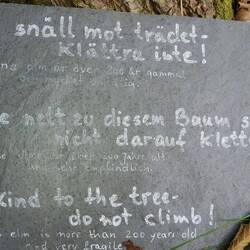 snäll mot trädet-
klättra inte!
alm är över 200 år gammal
nett zu diesem Baum
nicht darauf klett
200 Jahre alt
empfindlich.
kind to the tree-
do not climb!
elm is more than 200 years old
and very fragile.